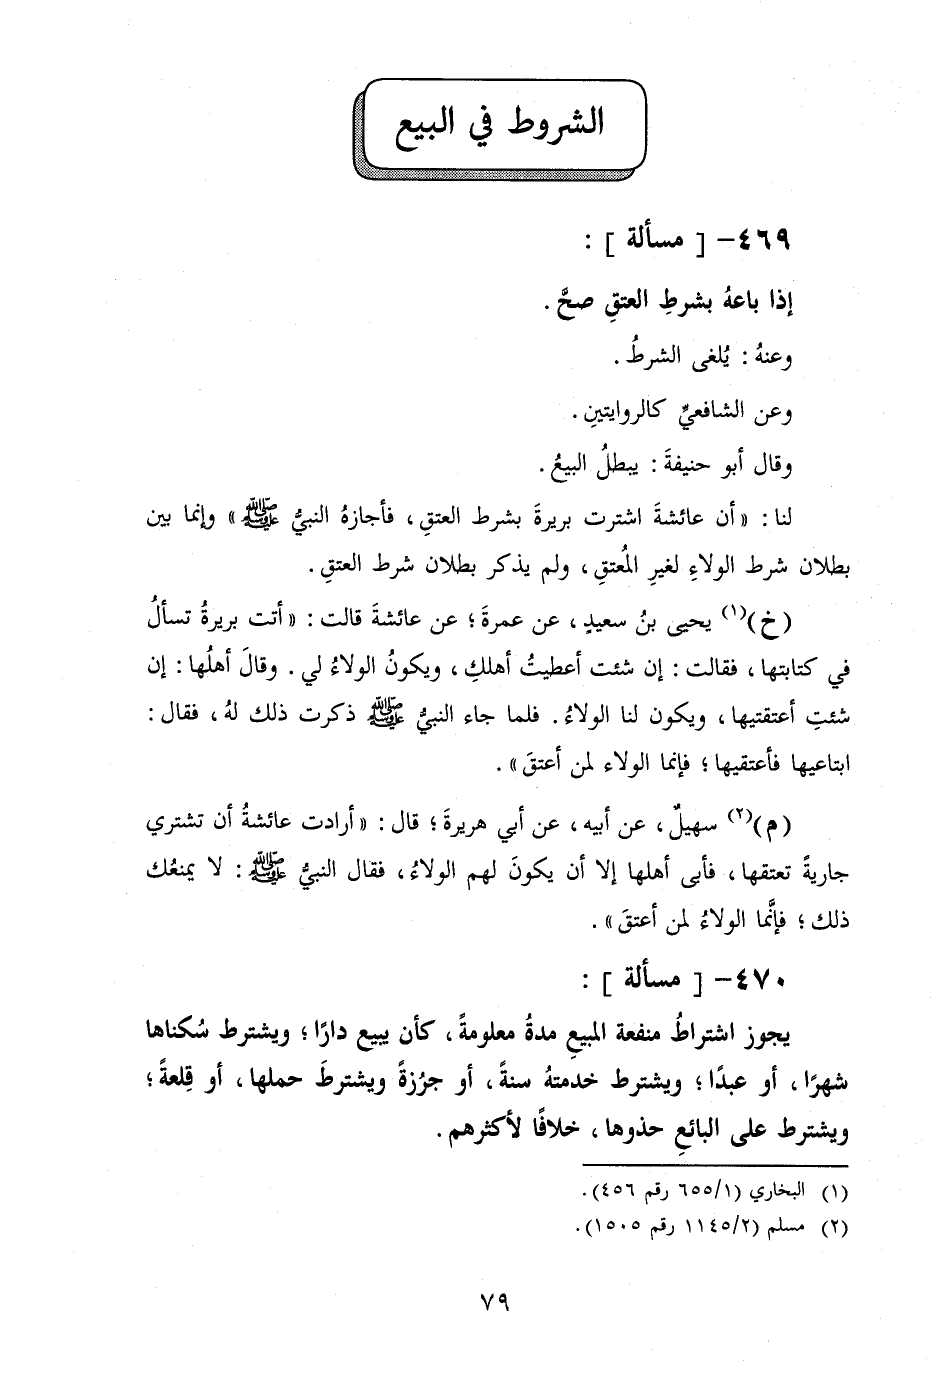 الشروط في البيع
٤٦٩- [ مسألة ] :
إذا باعهُ بشرطِ العتقِ صحَّ .
وعنهُ : يُلغى الشرطُ .
وعن الشافعيِّ كالروايتينِ .
وقال أبو حنيفةَ : يبطلُ البيعُ .
لنا : « أن عائشةَ اشترت بريرةَ بشرط العتقِ ، فأجازهُ النبيُّ ﷺ » وإنما بين
بطلان شرط الولاءِ لغيرِ المُعتقِ ، ولم يذكر بطلان شرط العتقِ .
(خ)(١) يحيى بنُ سعيدٍ ، عن عمرةَ ؛ عن عائشةَ قالت : « أتت بريرةُ تسألُ
في كتابتها ، فقالت : إن شئت أعطيتُ أهلكِ ، ويكونُ الولاءُ لي . وقالَ أهلُها : إن
شئتِ أعتقتيها ، ويكون لنا الولاءُ . فلما جاء النبيُّ ﷺ ذكرت ذلك لهُ ، فقال :
ابتاعيها فأعتقيها ؛ فإنما الولاء لمن أعتقَ » .
(م)(٢) سهيلٌ ، عن أبيه ، عن أبي هريرةَ ؛ قال : « أرادت عائشةُ أن تشتري
جاريةً تعتقها ، فأبى أهلها إلا أن يكونَ لهم الولاءُ ، فقال النبيُّ ﷺ : لا يمنعُك
ذلك ؛ فإنَّما الولاءُ لمن أعتقَ » .
٤٧٠- [ مسألة ] :
يجوز اشتراطُ منفعة المبيعِ مدةُ معلومةً ، كأن يبيع دارًا ؛ ويشترط سُكناها
شهرًا ، أو عبدًا ؛ ويشترط خدمتهُ سنةً ، أو جرُزةً ويشترطَ حملها ، أو قِلعةً ؛
ويشترط على البائعِ حذوها ، خلافًا لأكثرهم .
(١) البخاري (١/ ٦٥٥ رقم ٤٥٦).
(٢) مسلم (٢/ ١١٤٥ رقم ١٥٠٥).
٧٩